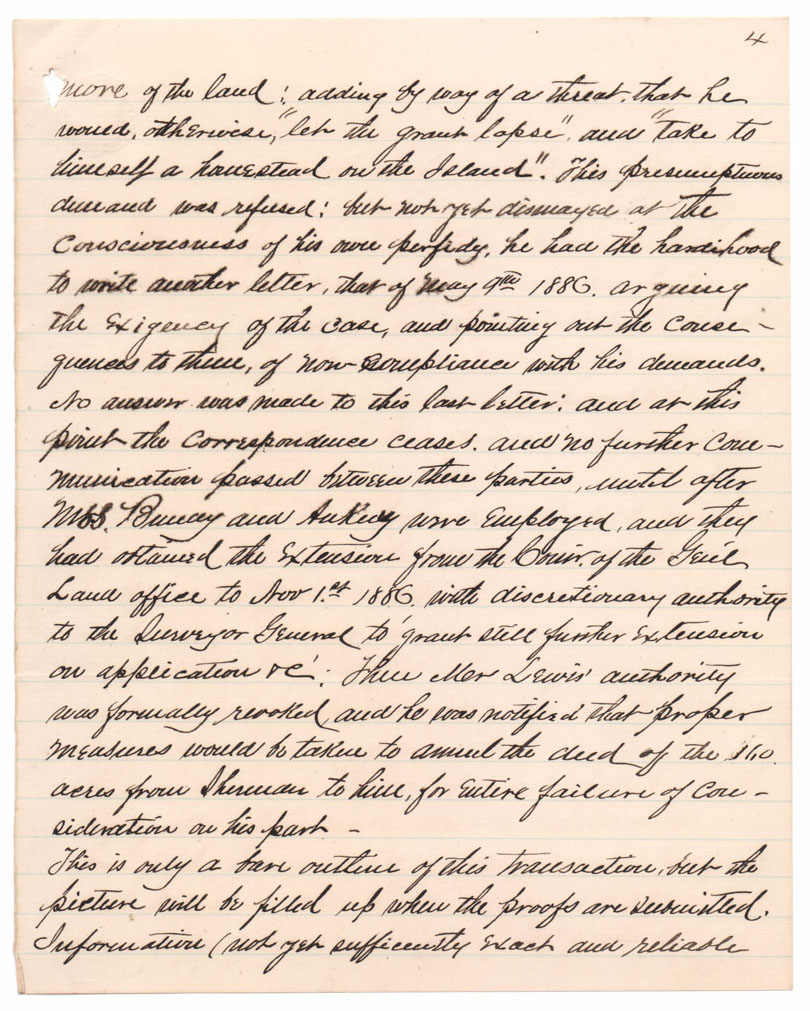 4
more of the land; adding by way of a threat, that he
would, otherwise, "let the grant lapse", and "take to
himself a homestead on the Island". This presumptuous
demand was refused; but not yet dismayed at the
Consciousness of his own perfidy, he had the hardihood
to write another letter, that of May 9th 1886. arguing
the Exigency of the case, and pointing out the Conse-
quences to them, of non-compliance with his demands.
No answer was made to this last letter; and at this
point the Correspondence ceases. and no further Com-
munication passed between these parties, until after
and were Employed, and they
had obtained the Extension from the Comr. of the Genl
Land office to Nov 1.st 1886. with discretionary authority
to the Surveyor General to 'grant still further Extension
on application &c'; Then Mr Lewis' authority
was formally revoked, and he was notified that proper
measures would be taken to annul the deed of the 160.
acres from Sherman to him, for Entire failure of Con-
sideration on his part -
This is only a bare outline of this transaction, but the
picture will be filled up when the proofs are submitted.
Information (not yet sufficently Exact and reliable